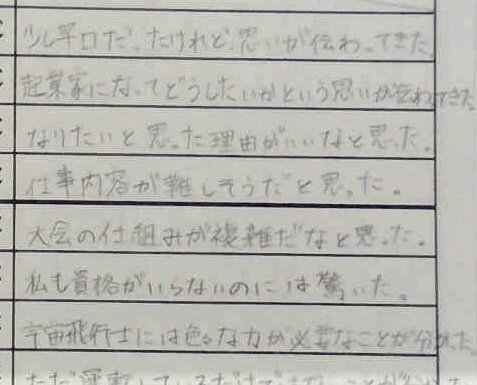 少し早口だったけれど、思いが伝わってきた。
起業家になってどうしたいかという思いが伝わってきた。
なりたいと思った理由がいいなと思った。
仕事内容が難しそうだと思った。
大会の仕組みが複雑だなと思った。
私も資格がいらないのには驚いた。
宇宙飛行士には色々な力が必要なことが分かった。
ただ運転しているだけで